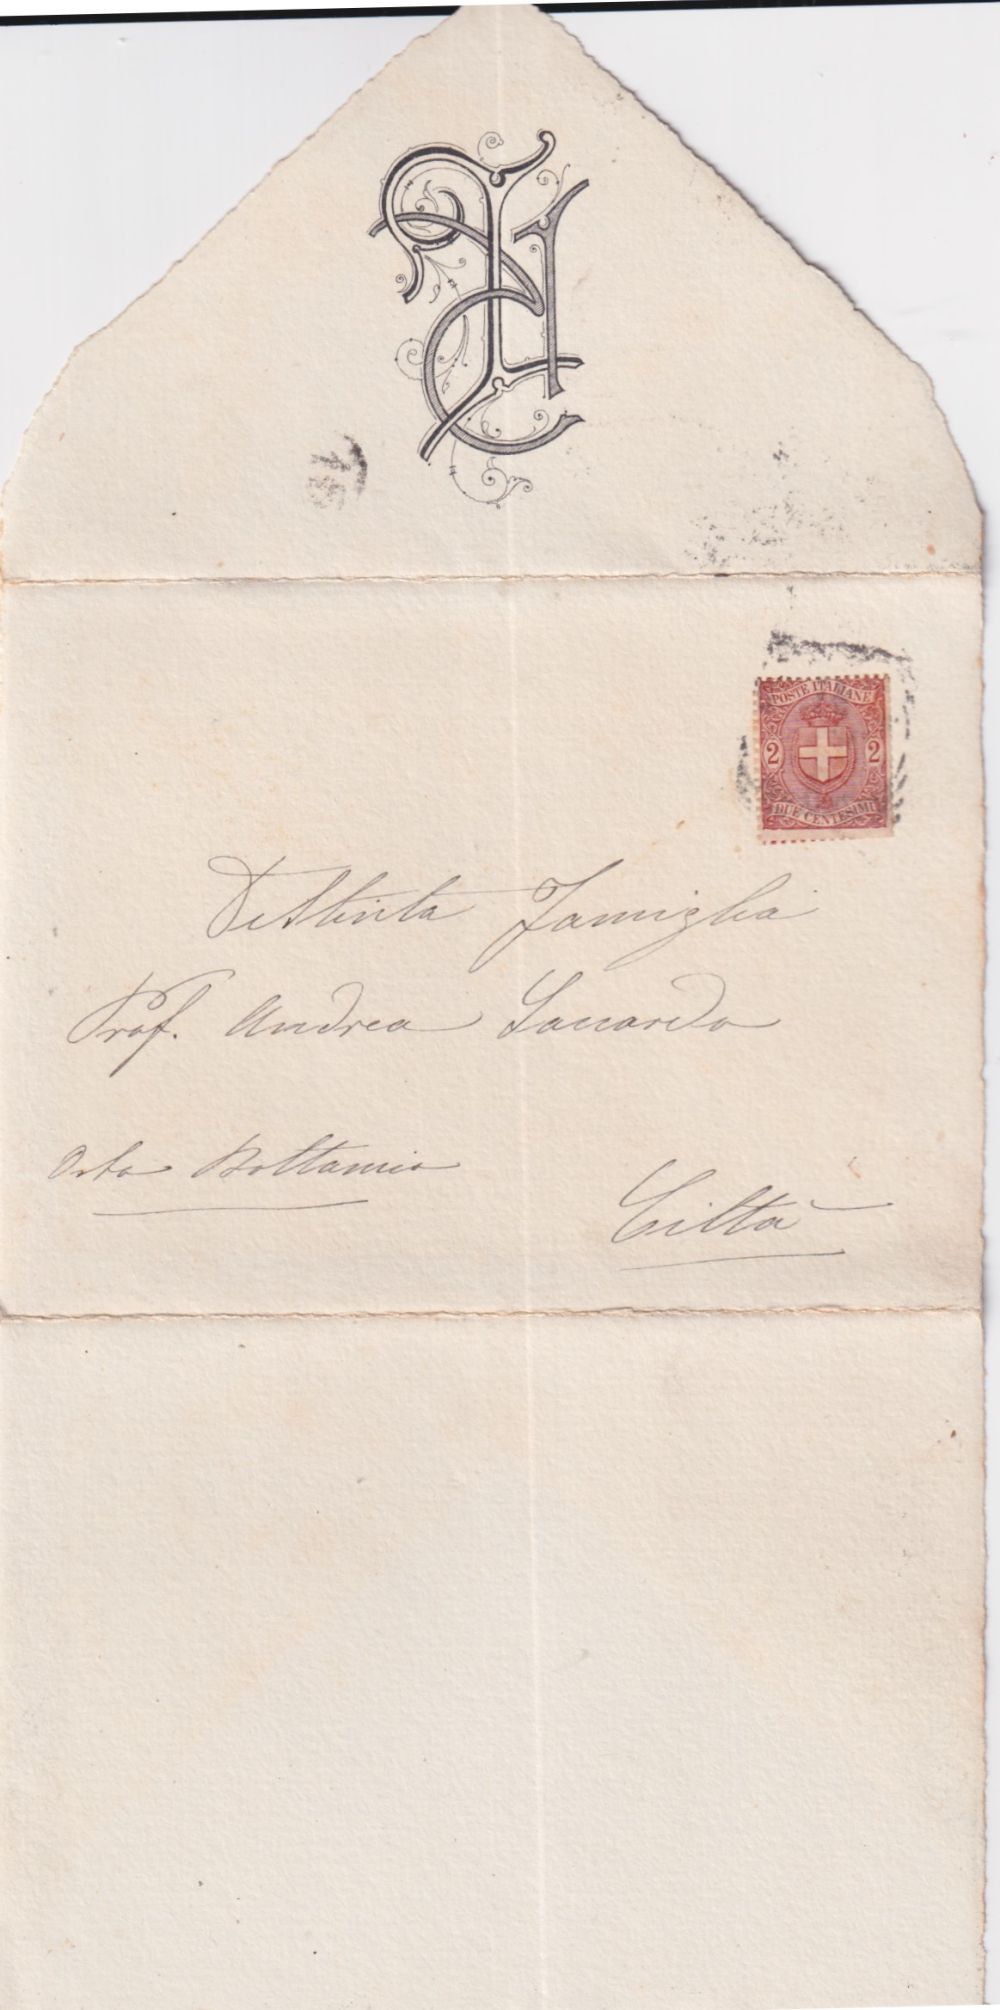 POSTE ITALIANE
2 2
DUE CENTESIMI
Distinta Famiglia
Prof. Andrea Saccardo
Orto Bottanico
Città